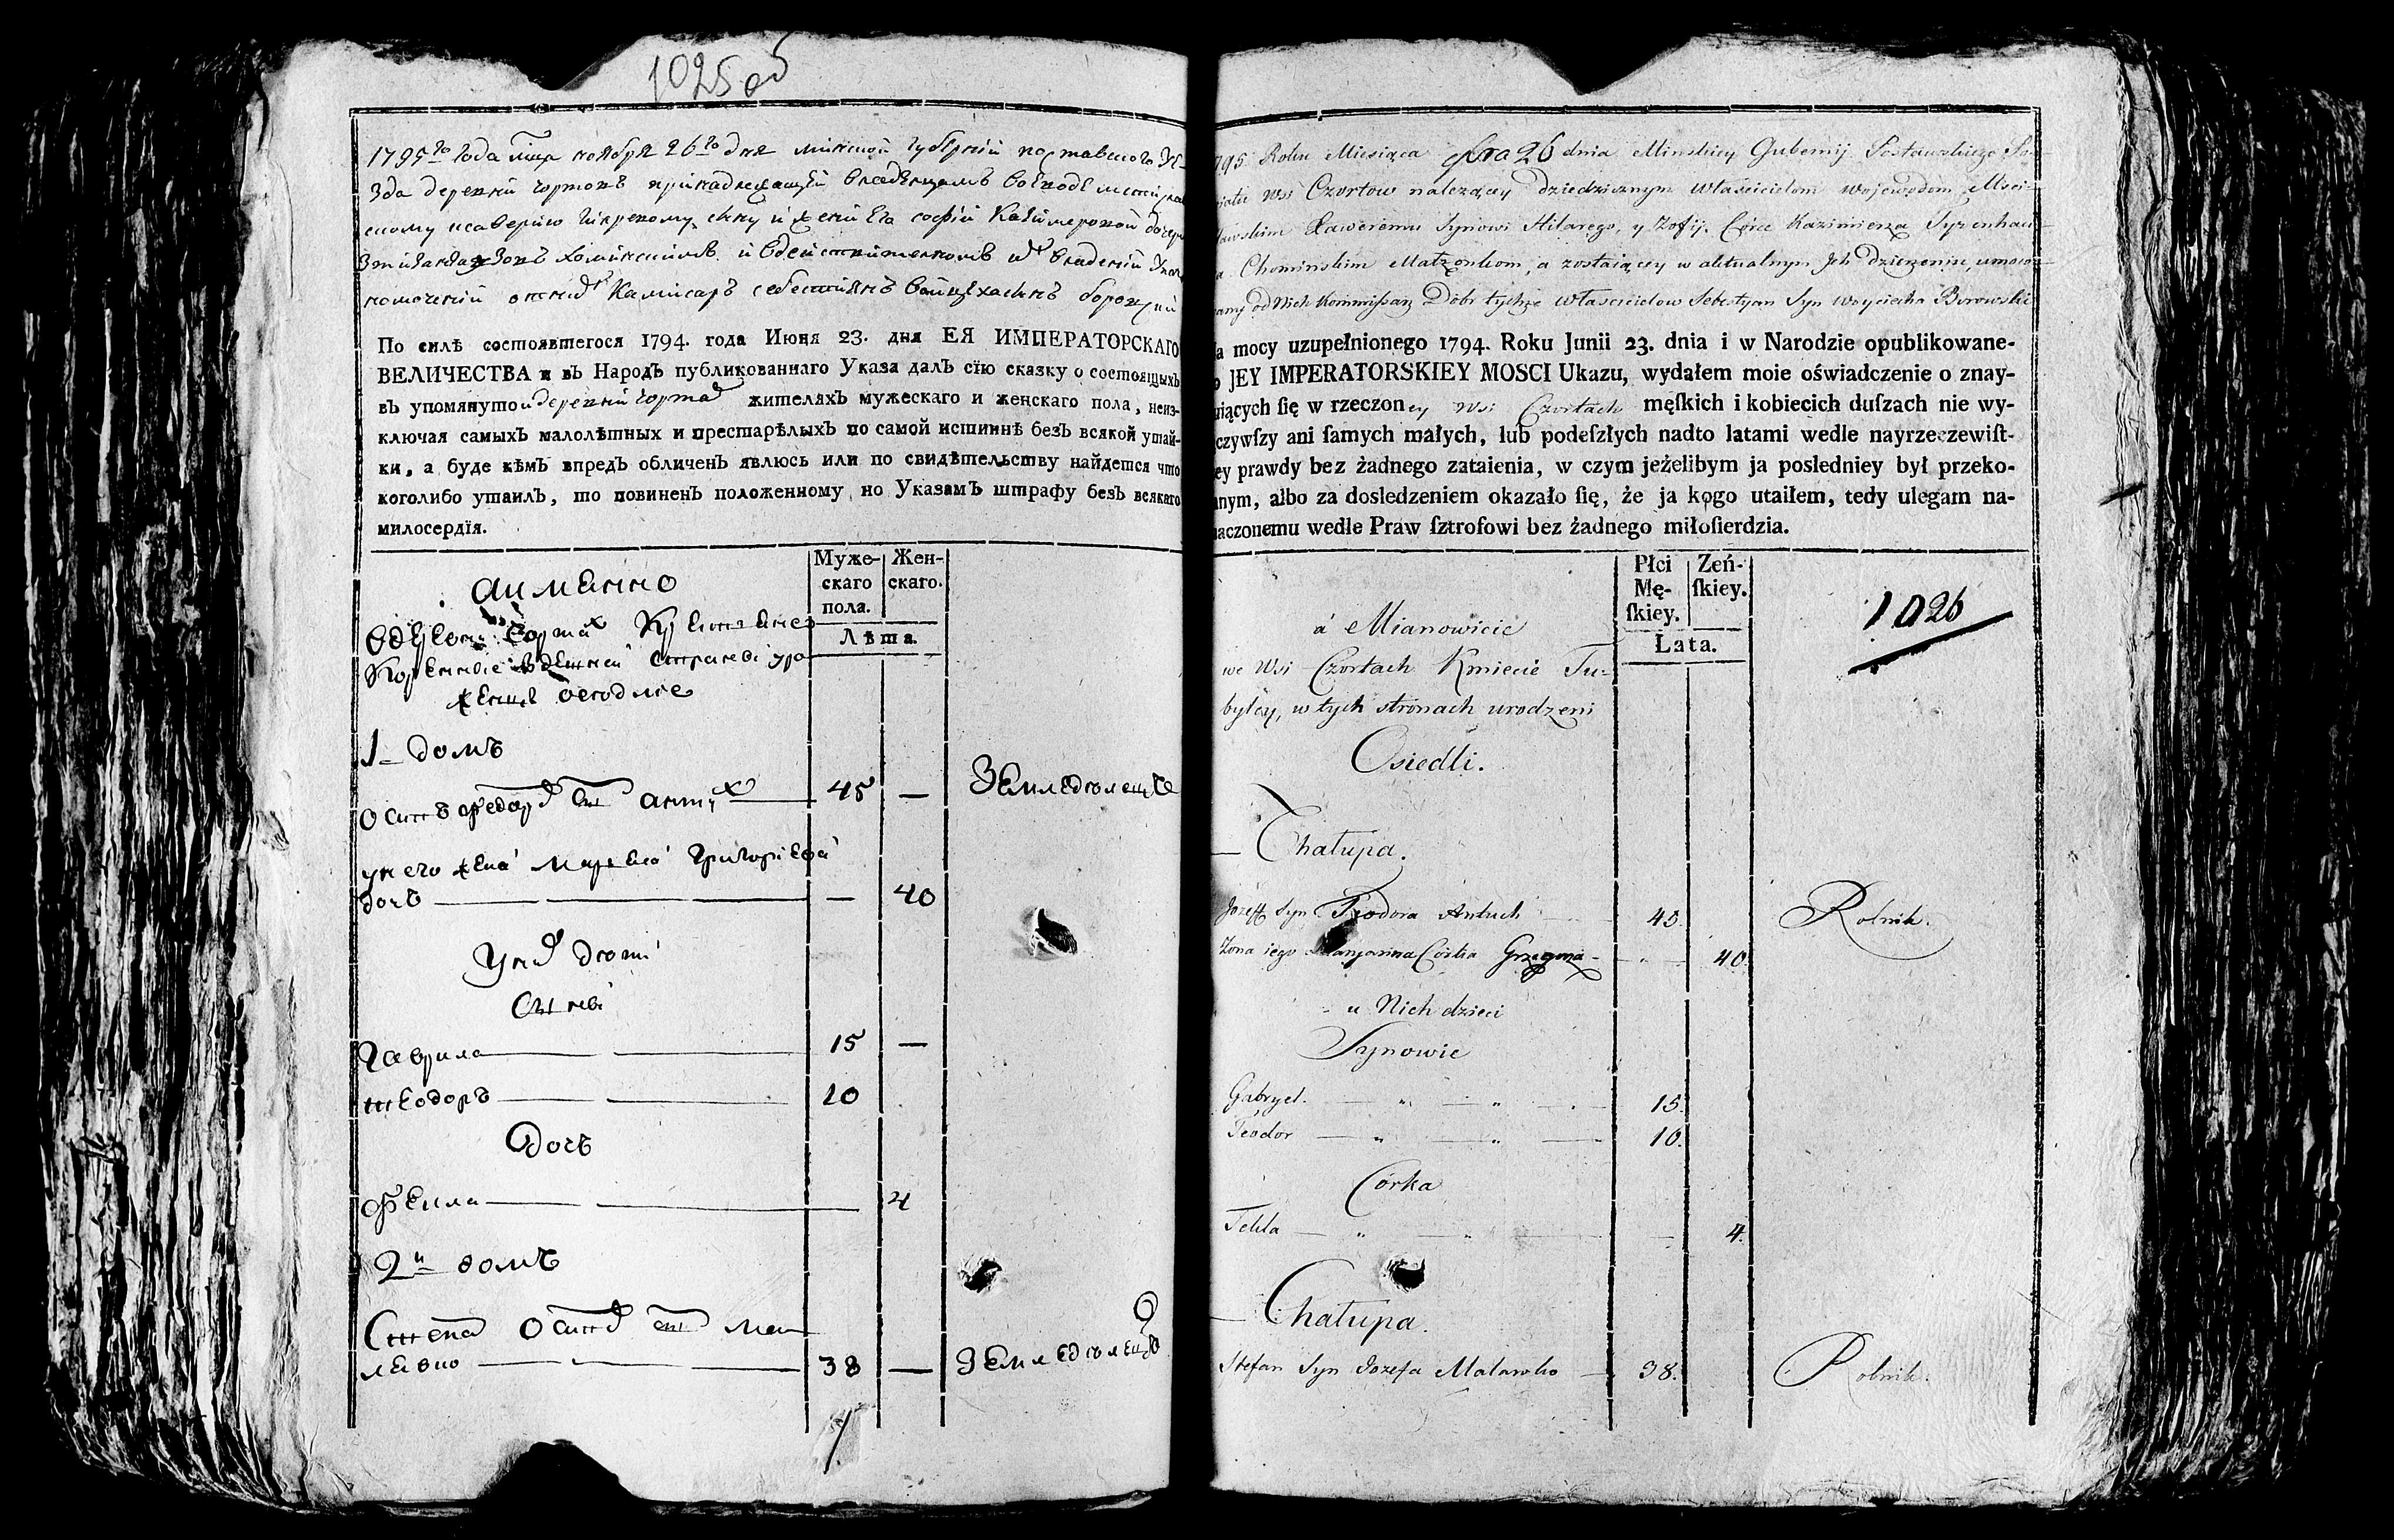 1025 об
1795го года мца ноября 26го дня минской губернии поставского уе-
зда деревни чортовъ принадлежащей владельцамъ воеводе
скому ксаверию сыну и жене его софии казимеровой дочери
хоминскимъ и в владении
комисаръ себестиянъ боровский
По силѣ состоявшегося 1794. года Июня 23. дня ЕЯ ИМПЕРАТОРСКАГО
ВЕЛИЧЕСТВА и въ Народъ публикованнаго Указа далъ сїю сказку о состоящыхъ
въ упомянутои деревни чорта жителяхъ мужескаго и женскаго пола, неиз-
ключая самыхъ малолѣтных и престарѣлыхъ по самой истиннѣ безъ всякой утай-
ки, а буде кѣмъ впредъ обличенъ явлюсь или по свидѣтельству найдется что
коголибо утаилъ, то повиненъ положенному по Указамъ штрафу безъ всякаго
милосердїя.
Муже-
скаго
пола.
Жен-
скаго.
Лѣта.
аименно
в деревни чортах крестяне
коренные в здешней стороне уро
женцы оседлие
1 домъ
осипъ федора сынъ антух 45 — Земледелецъ
у него жена марьяна григорьева
дочь — 40
у них дети
сыневи
гаврила 15 —
теодоръ 10
дочь
фекла 4
2й домъ
Степан осипа сынъ ма
левко 38 — Земледелецъ
795 Roku Miesiąca 9bra 26 dnia Minskiey Gubernij Postawskiego Po-
wiatu wsi Czortow należącey dziedzicznym właścicielom wojewodom Msci-
sławskim Xaweremu Synowi Hilarego, y Zofij Córce Kazimierza Tyzenhau-
za Chominskim Małżonkom, a zostaiącey w aktualnym Jch dzierżeniu, umoco-
wany od Nich Kommissarz Dobr tychże właścicielow Sebestyan Syn Woyciecha Borowski
a mocy uzupełnionego 1794. Roku Junii 23. dnia i w Narodzie opublikowane-
o JEY IMPERATORSKIEY MOSCI Ukazu, wydałem moie oświadczenie o znay-
uiących ſię w rzeczoney wsi Czortach męſkich i kobiecich duſzach nie wy-
czywſzy ani ſamych małych, lub podeſzłych nadto latami wedle nayrzeczewiſt-
ey prawdy bez żadnego zataienia, w czym jeżelibym ja posledniey był przeko-
anym, albo za dosledzeniem okazało ſię, że ja kogo utaiłem, tedy ulegam na-
naczonemu wedle Praw ſztrofowi bez żadnego miłoſierdzia.
Płci
Mę-
ſkiey.
Zeń-
ſkiey.
Lata.
1026
á Mianowicie
we Wsi Czortach Kmiecie Tu-
bylcy, w tych stronach urodzeni
Osiedli.
— Chałupa.
Jozeff Syn Teodora Antuch 45. Rolnik.
Zona iego Maryanna Córka Grzegorza — 40.
u Nich dzieci
Synowie
Gabryel. 15.
Teodor 10.
Córka
Tekla — 4.
— Chałupa.
Stefan Syn Jozefa Malawko 38. Rolnik.